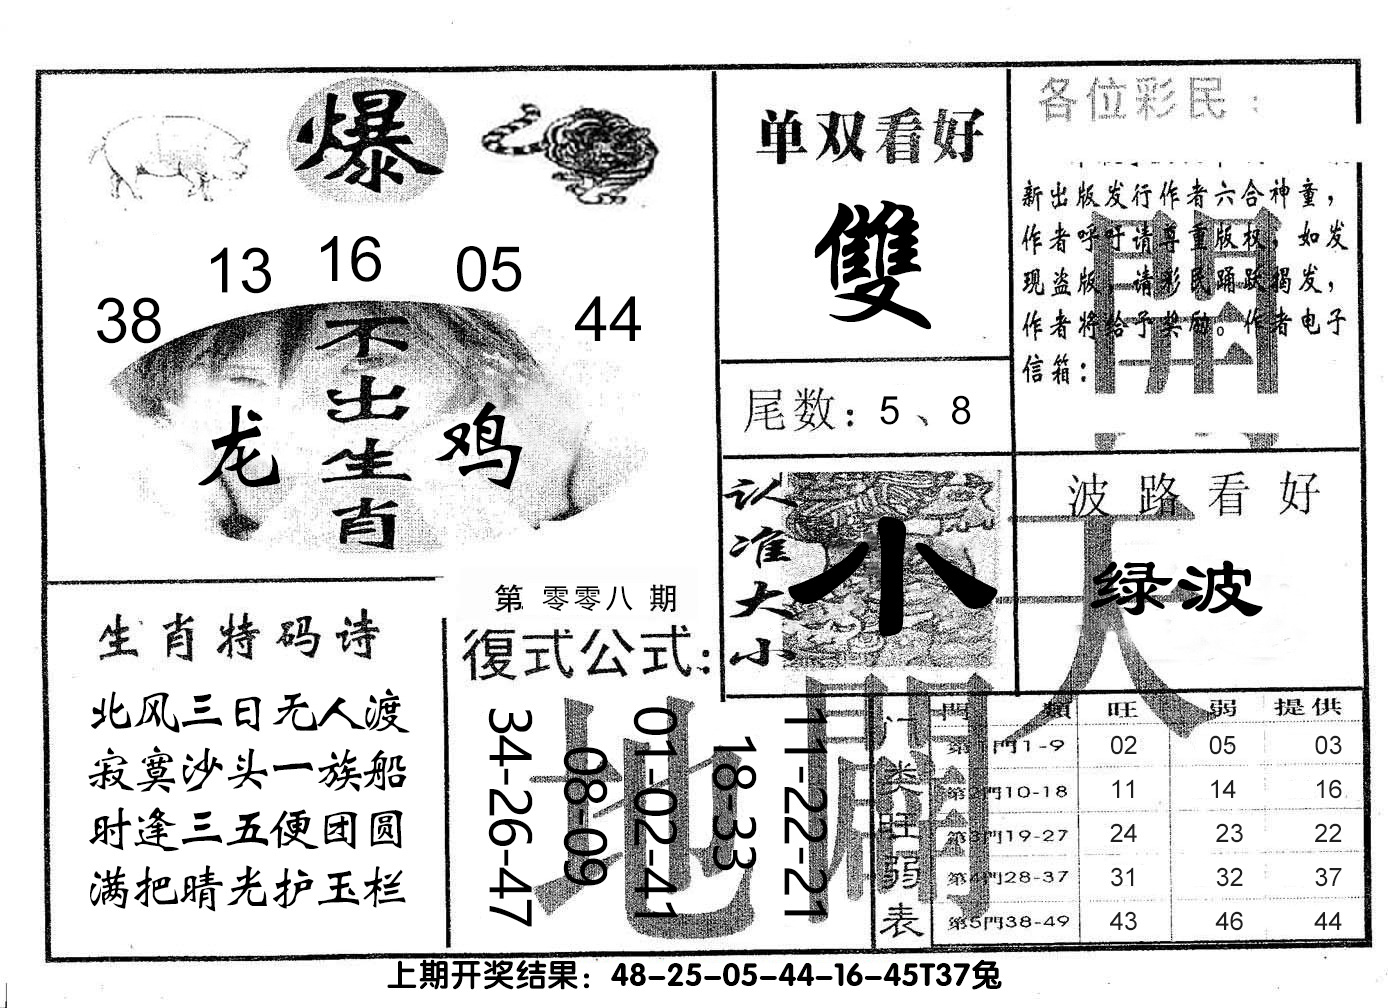 爆
13 16 05
38 44
不出生肖
龙 鸡
单双看好
雙
尾数：5、8
各位彩民：
新出版发行作者六合神童，
作者呼吁请尊重版权，如发
现盗版，请彩民踊跃揭发，
作者将给予奖励。作者电子
信箱：
认准大小
小
波路看好
绿波
生肖特码诗
北风三日无人渡
寂寞沙头一族船
时逢三五便团圆
满把晴光护玉栏
第 零零八 期
復式公式：
34-26-47
08-09
01-02-41
18-33
11-22-21
天地
開
門类旺弱表
門類 旺 弱 提供
第1門1-9 02 05 03
第2門10-18 11 14 16
第3門19-27 24 23 22
第4門28-37 31 32 37
第5門38-49 43 46 44
上期开奖结果：48-25-05-44-16-45T37兔